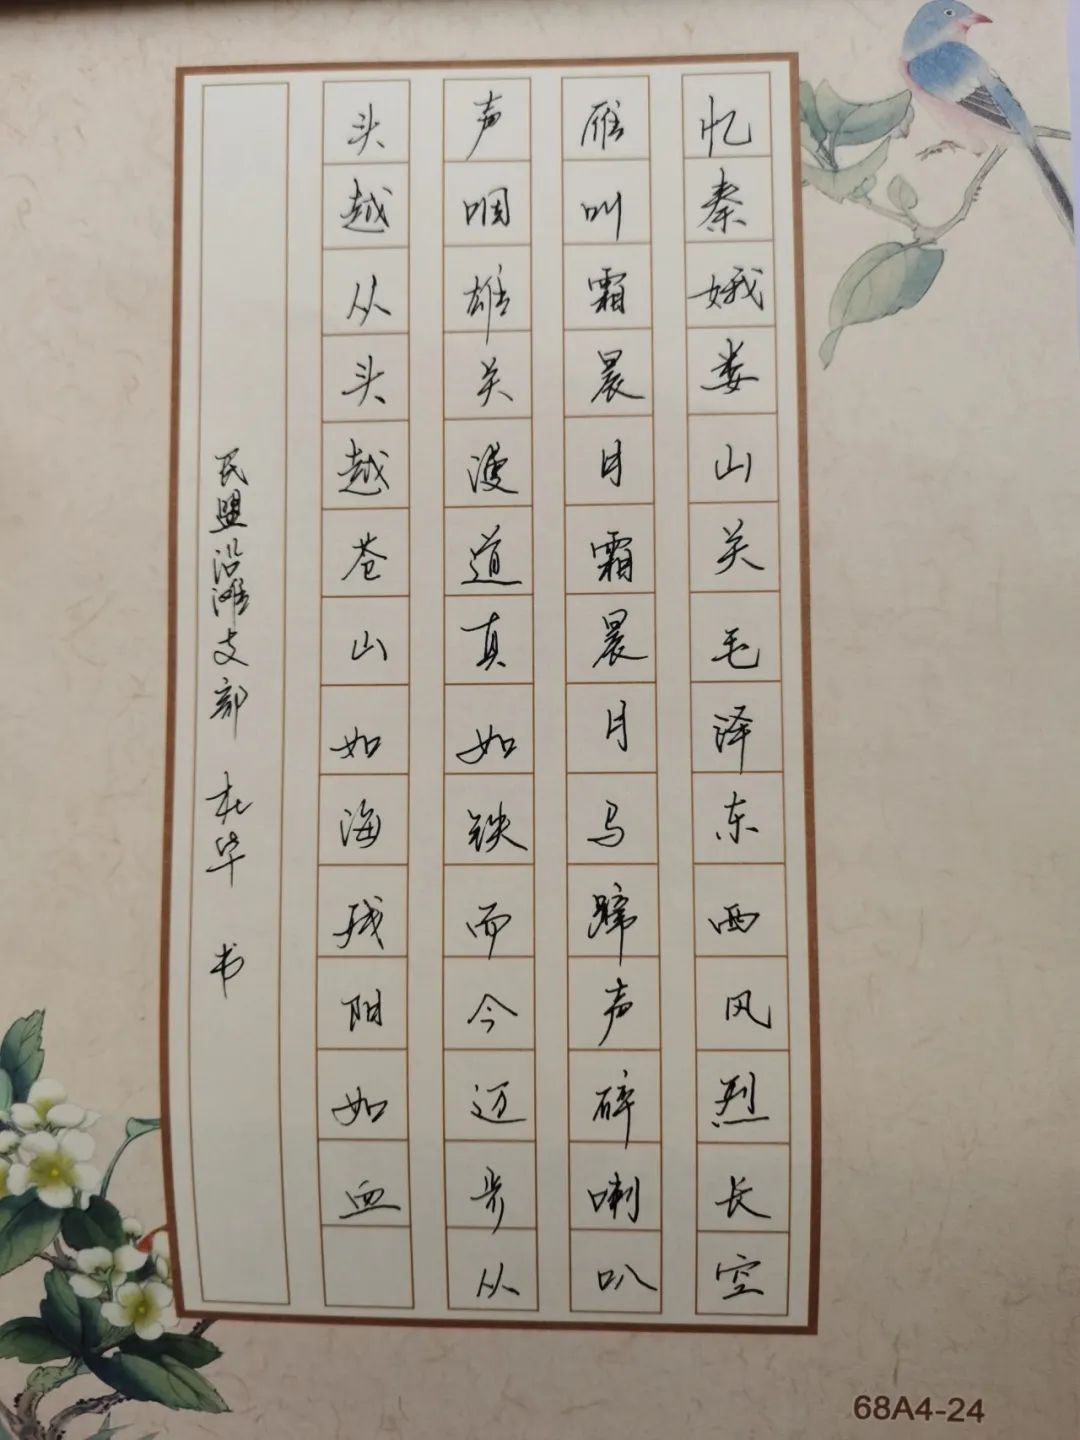 忆秦娥娄山关毛泽东西风烈长空
雁叫霜晨月霜晨月马蹄声碎喇叭
声咽雄关漫道真如铁而今迈步从
头越从头越苍山如海残阳如血
民盟沿滩支部 杜华 书
68A4-24